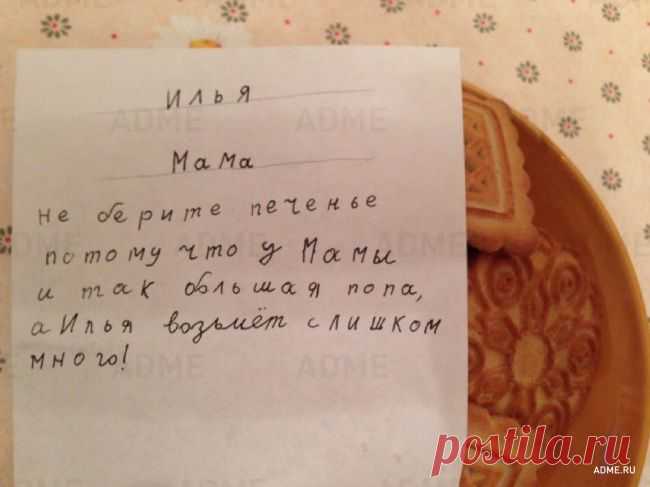 Илья
Мама
не берите печенье
потому что у Мамы
и так большая попа,
а Илья возьмёт слишком
много!
ADME
ADME
ADME
ADME
ADME
postila.ru
ADME.RU